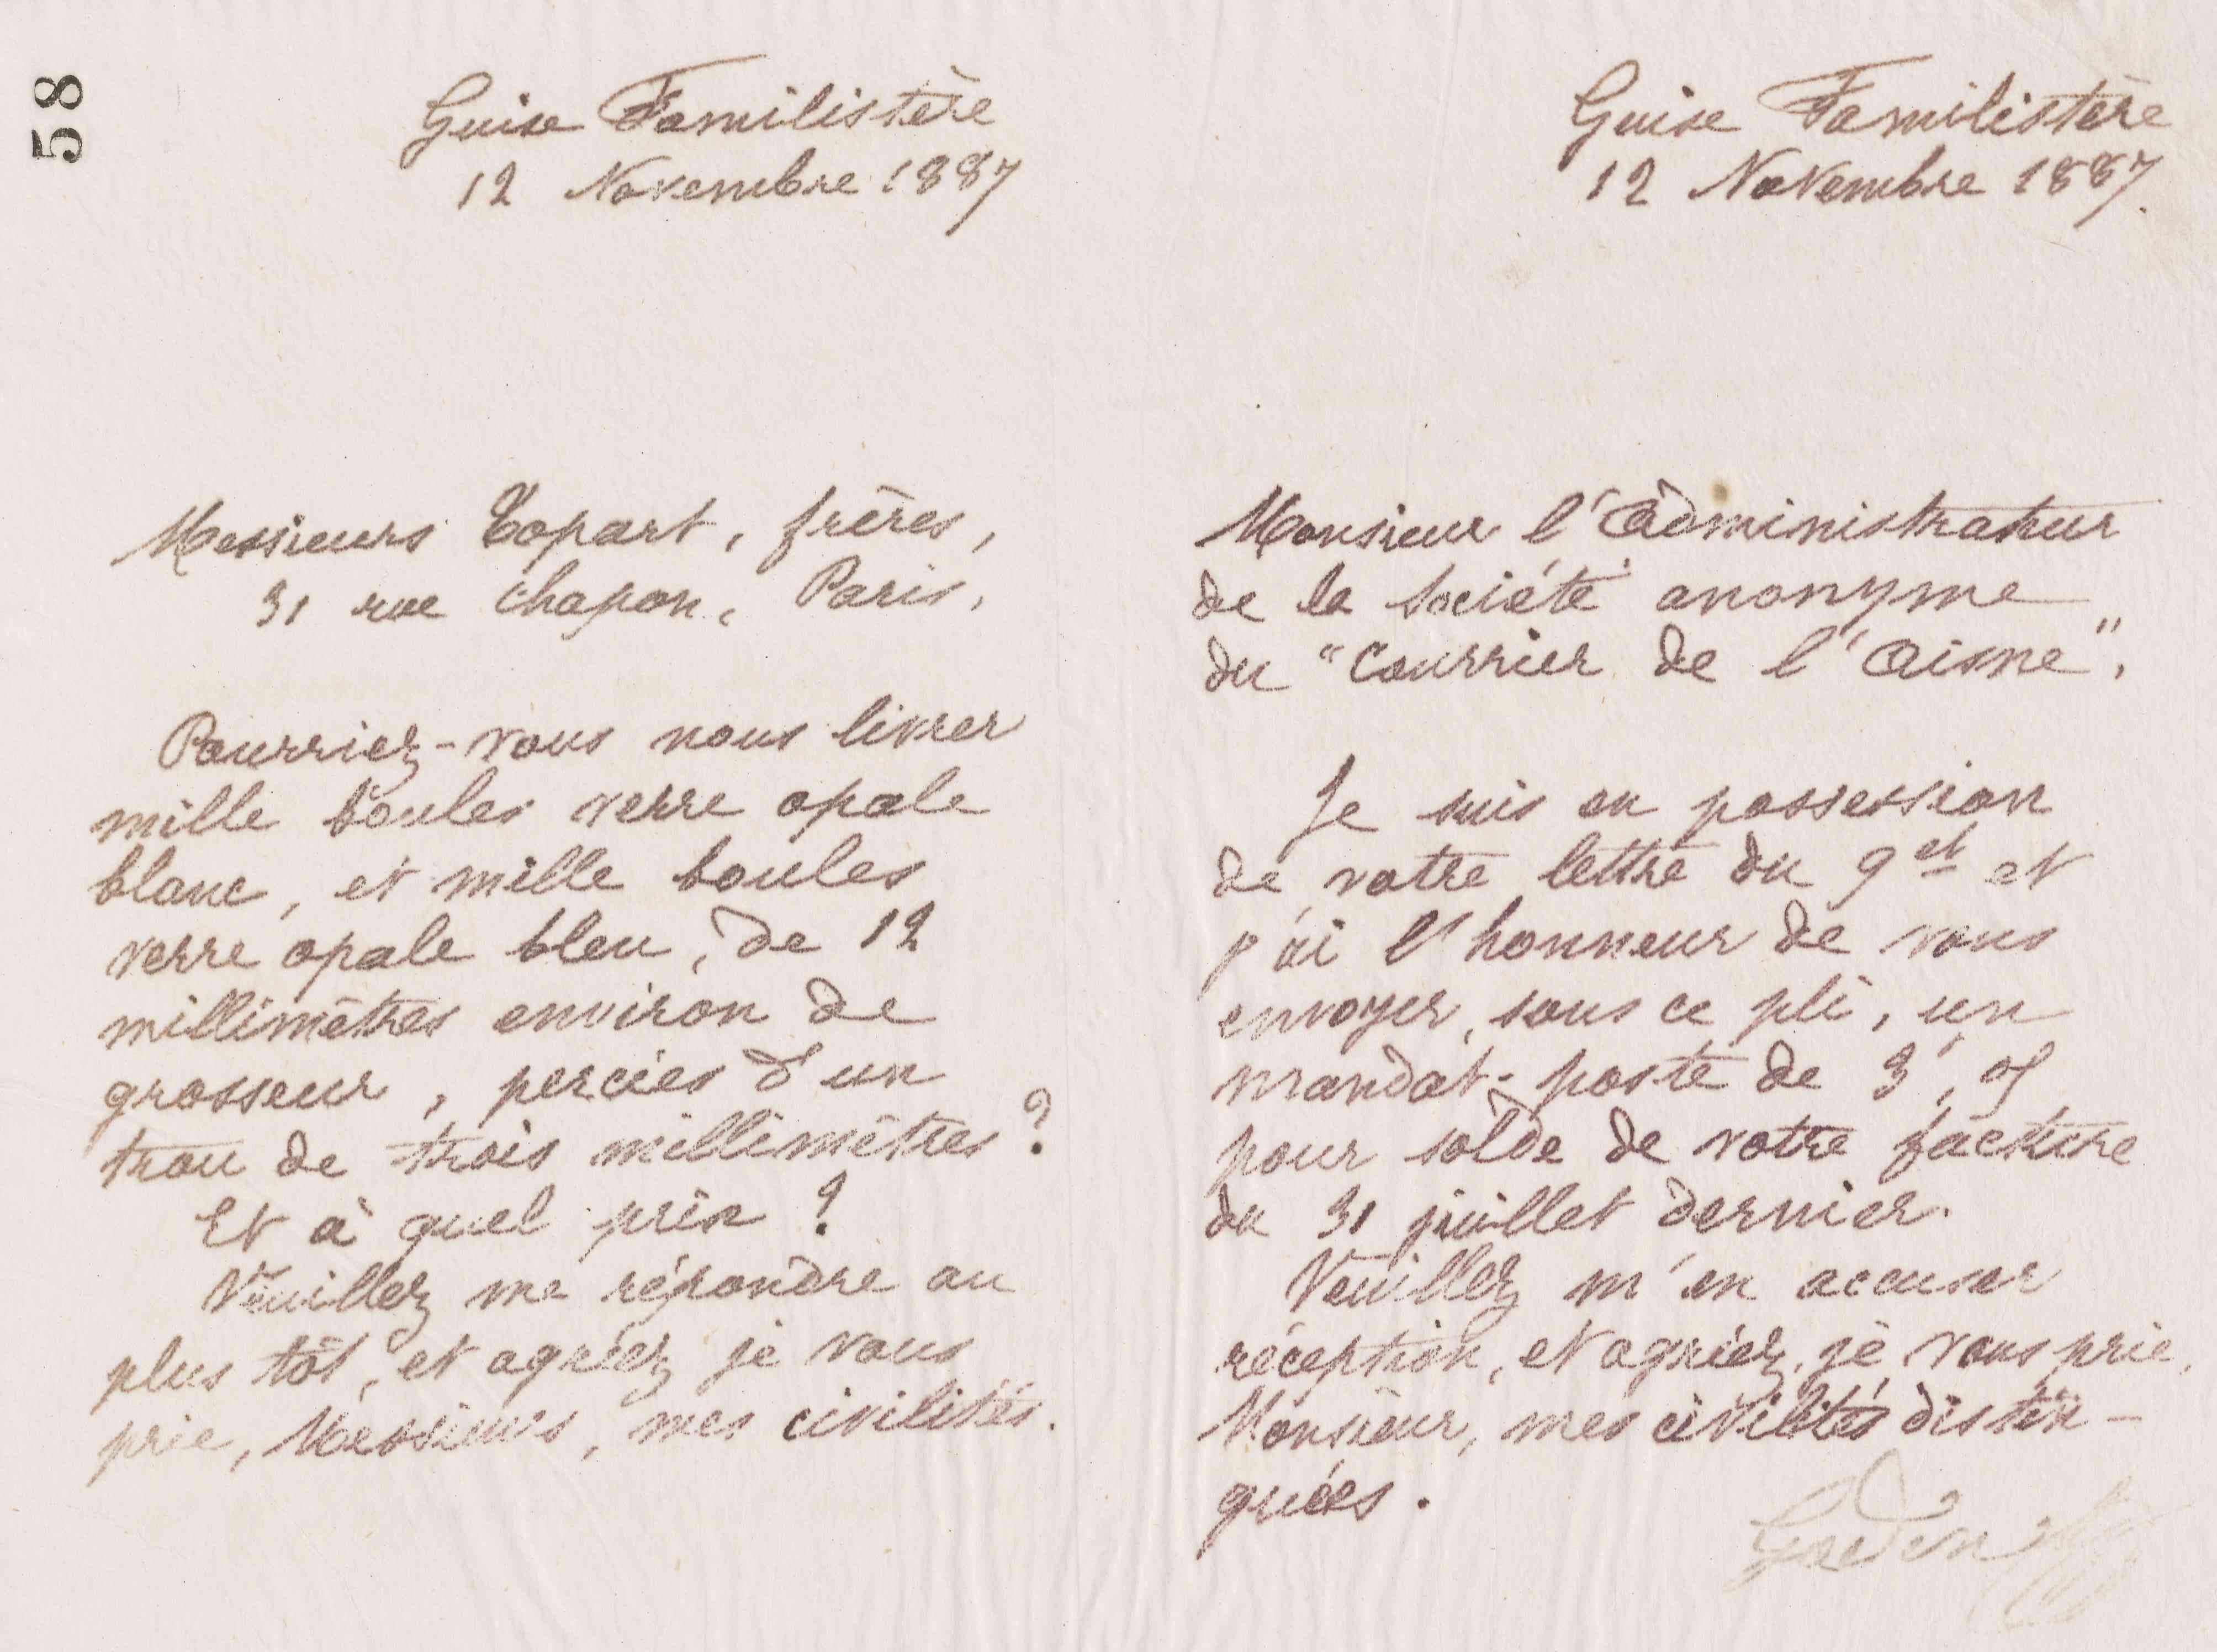 58
Guise Familistère
12 Novembre 1887
Messieurs Topart, frères,
31 rue Chapon, Paris,
Pourriez-vous nous livrer
mille boules verre opale
blanc, et mille boules
verre opale bleu, de 12
millimètres environ de
grosseur, percées d'un
trou de trois millimètres?
Et à quel prix?
Veuillez me répondre au
plus tôt, et agréez je vous
prie, Messieurs, mes civilités.
Guise Familistère
12 Novembre 1887.
Monsieur l'Administrateur
de la Société anonyme
du "Courrier de l'Aisne",
Je suis en possession
de votre lettre du 9 et et
j'ai l'honneur de vous
envoyer, sous ce pli, un
mandat-poste de
pour solde de votre facture
du 31 juillet dernier.
Veuillez m'en accuser
réception, et agréez, je vous prie,
Monsieur, mes civilités distin-
guées.
Godin